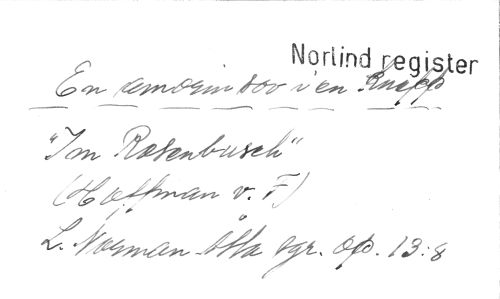 Norlind register
En amorin sov i en knopp
"Im Rosenbusch"
(Hoffman v. F)
L. Norman Åtta sgr. op. 13:8